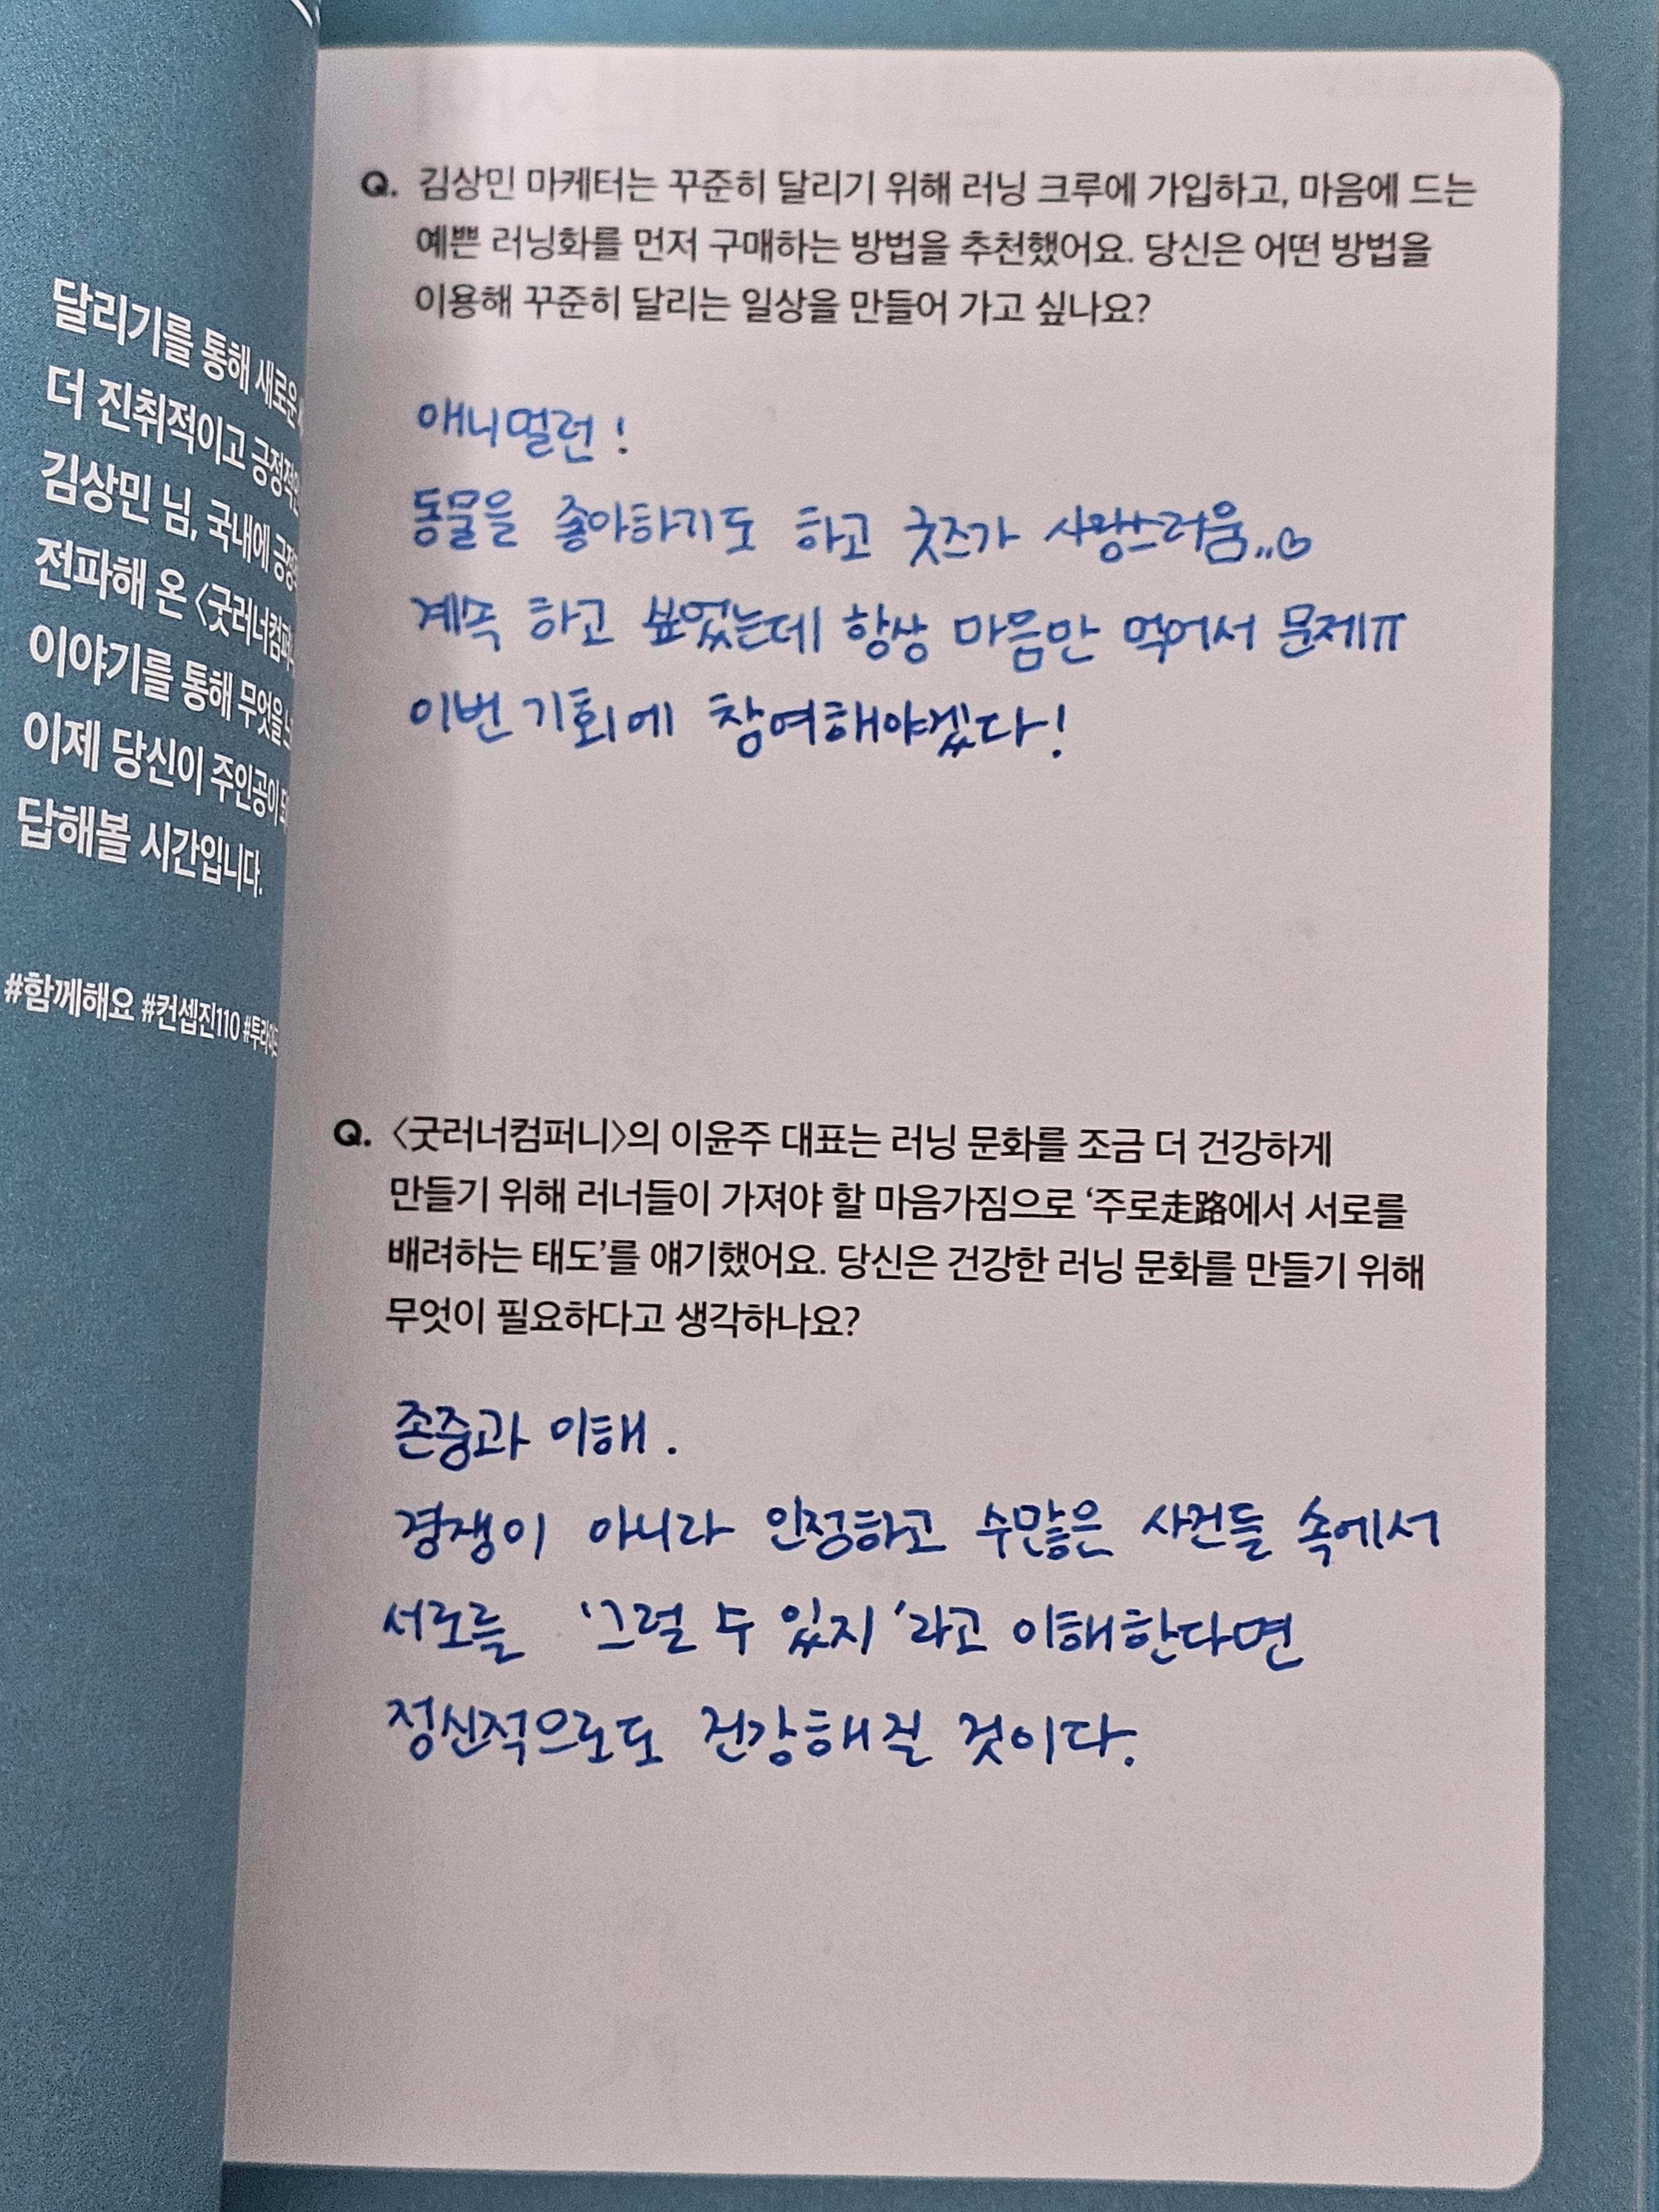 달리기를 통해 새로운
더 진취적이고 긍정적인
김상민 님, 국내에 긍정
전파해 온 <굿러너컴퍼
이야기를 통해 무엇을
이제 당신이 주인공이
답해볼 시간입니다.
#함께해요 #컨셉진110
Q. 김상민 마케터는 꾸준히 달리기 위해 러닝 크루에 가입하고, 마음에 드는
예쁜 러닝화를 먼저 구매하는 방법을 추천했어요. 당신은 어떤 방법을
이용해 꾸준히 달리는 일상을 만들어 가고 싶나요?
애니멀런!
동물을 좋아하기도 하고 굿즈가 사랑스러움..♡
계속 하고 싶었는데 항상 마음만 먹어서 문제ㅠ
이번 기회에 참여해야겠다!
Q. <굿러너컴퍼니>의 이윤주 대표는 러닝 문화를 조금 더 건강하게
만들기 위해 러너들이 가져야 할 마음가짐으로 ‘주로走路에서 서로를
배려하는 태도’를 얘기했어요. 당신은 건강한 러닝 문화를 만들기 위해
무엇이 필요하다고 생각하나요?
존중과 이해.
경쟁이 아니라 인정하고 수많은 사건들 속에서
서로를 '그럴 수 있지'라고 이해한다면
정신적으로도 건강해질 것이다.